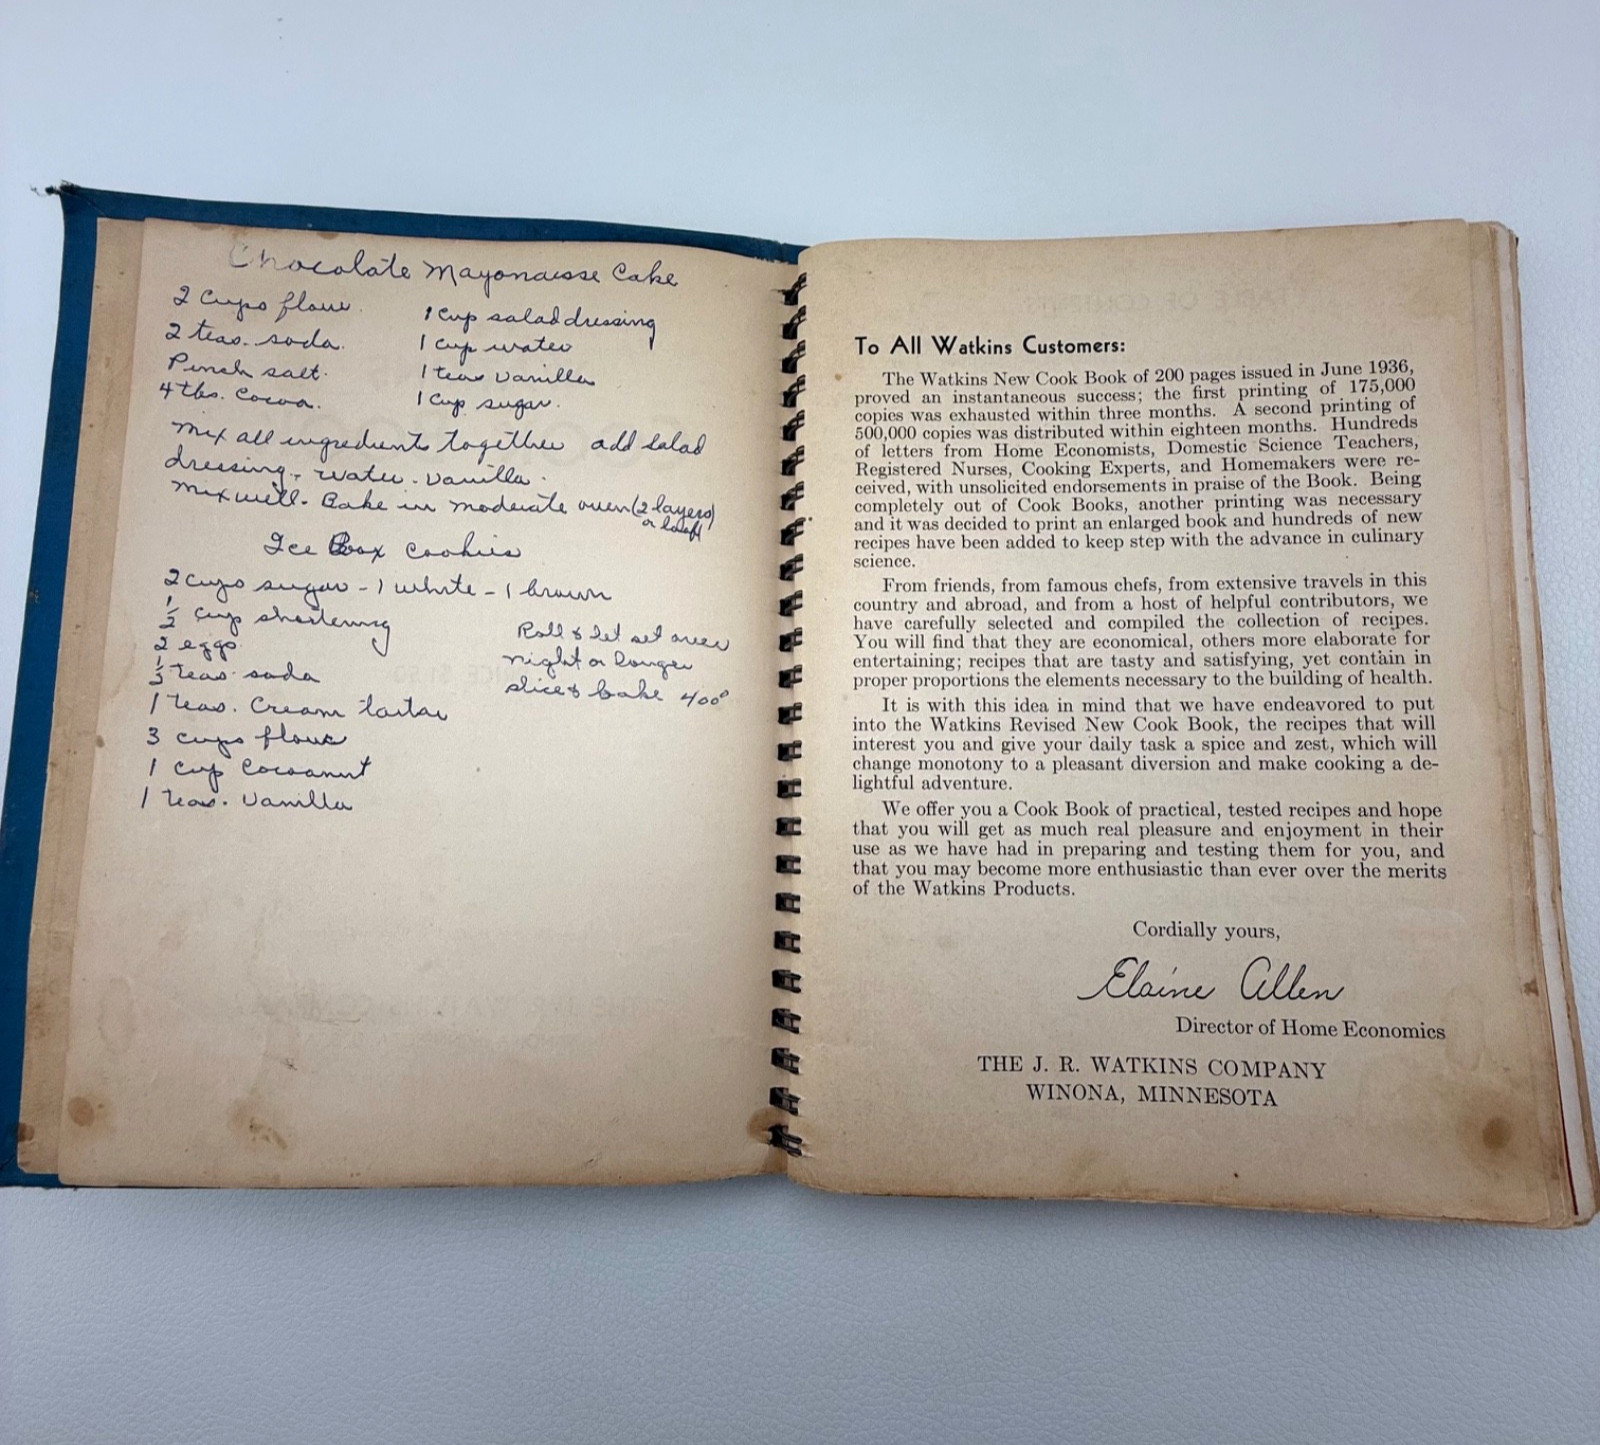 Chocolate Mayonaisse Cake
2 cups flour
2 teas. soda.
Pinch salt.
4 tbs. Cocoa.
1 cup salad dressing
1 cup water
1 teas Vanilla
1 cup sugar.
Mix all ingredients together add salad
dressing. water. Vanilla.
Mix well. Bake in moderate oven (2 layers)
or loaf)
Ice Box Cookies
2 cups sugar - 1 white - 1 brown
1/2 cup shortening
2 eggs
1/3 teas. soda
1 teas. Cream tartar
3 cups flour
1 cup Cocoanut
1 teas. Vanilla
Roll & let set over
night or longer
slice & bake 400°
To All Watkins Customers:
The Watkins New Cook Book of 200 pages issued in June 1936,
proved an instantaneous success; the first printing of 175,000
copies was exhausted within three months. A second printing of
500,000 copies was distributed within eighteen months. Hundreds
of letters from Home Economists, Domestic Science Teachers,
Registered Nurses, Cooking Experts, and Homemakers were re-
ceived, with unsolicited endorsements in praise of the Book. Being
completely out of Cook Books, another printing was necessary
and it was decided to print an enlarged book and hundreds of new
recipes have been added to keep step with the advance in culinary
science.
From friends, from famous chefs, from extensive travels in this
country and abroad, and from a host of helpful contributors, we
have carefully selected and compiled the collection of recipes.
You will find that they are economical, others more elaborate for
entertaining; recipes that are tasty and satisfying, yet contain in
proper proportions the elements necessary to the building of health.
It is with this idea in mind that we have endeavored to put
into the Watkins Revised New Cook Book, the recipes that will
interest you and give your daily task a spice and zest, which will
change monotony to a pleasant diversion and make cooking a de-
lightful adventure.
We offer you a Cook Book of practical, tested recipes and hope
that you will get as much real pleasure and enjoyment in their
use as we have had in preparing and testing them for you, and
that you may become more enthusiastic than ever over the merits
of the Watkins Products.
Cordially yours,
Elaine Allen
Director of Home Economics
THE J. R. WATKINS COMPANY
WINONA, MINNESOTA